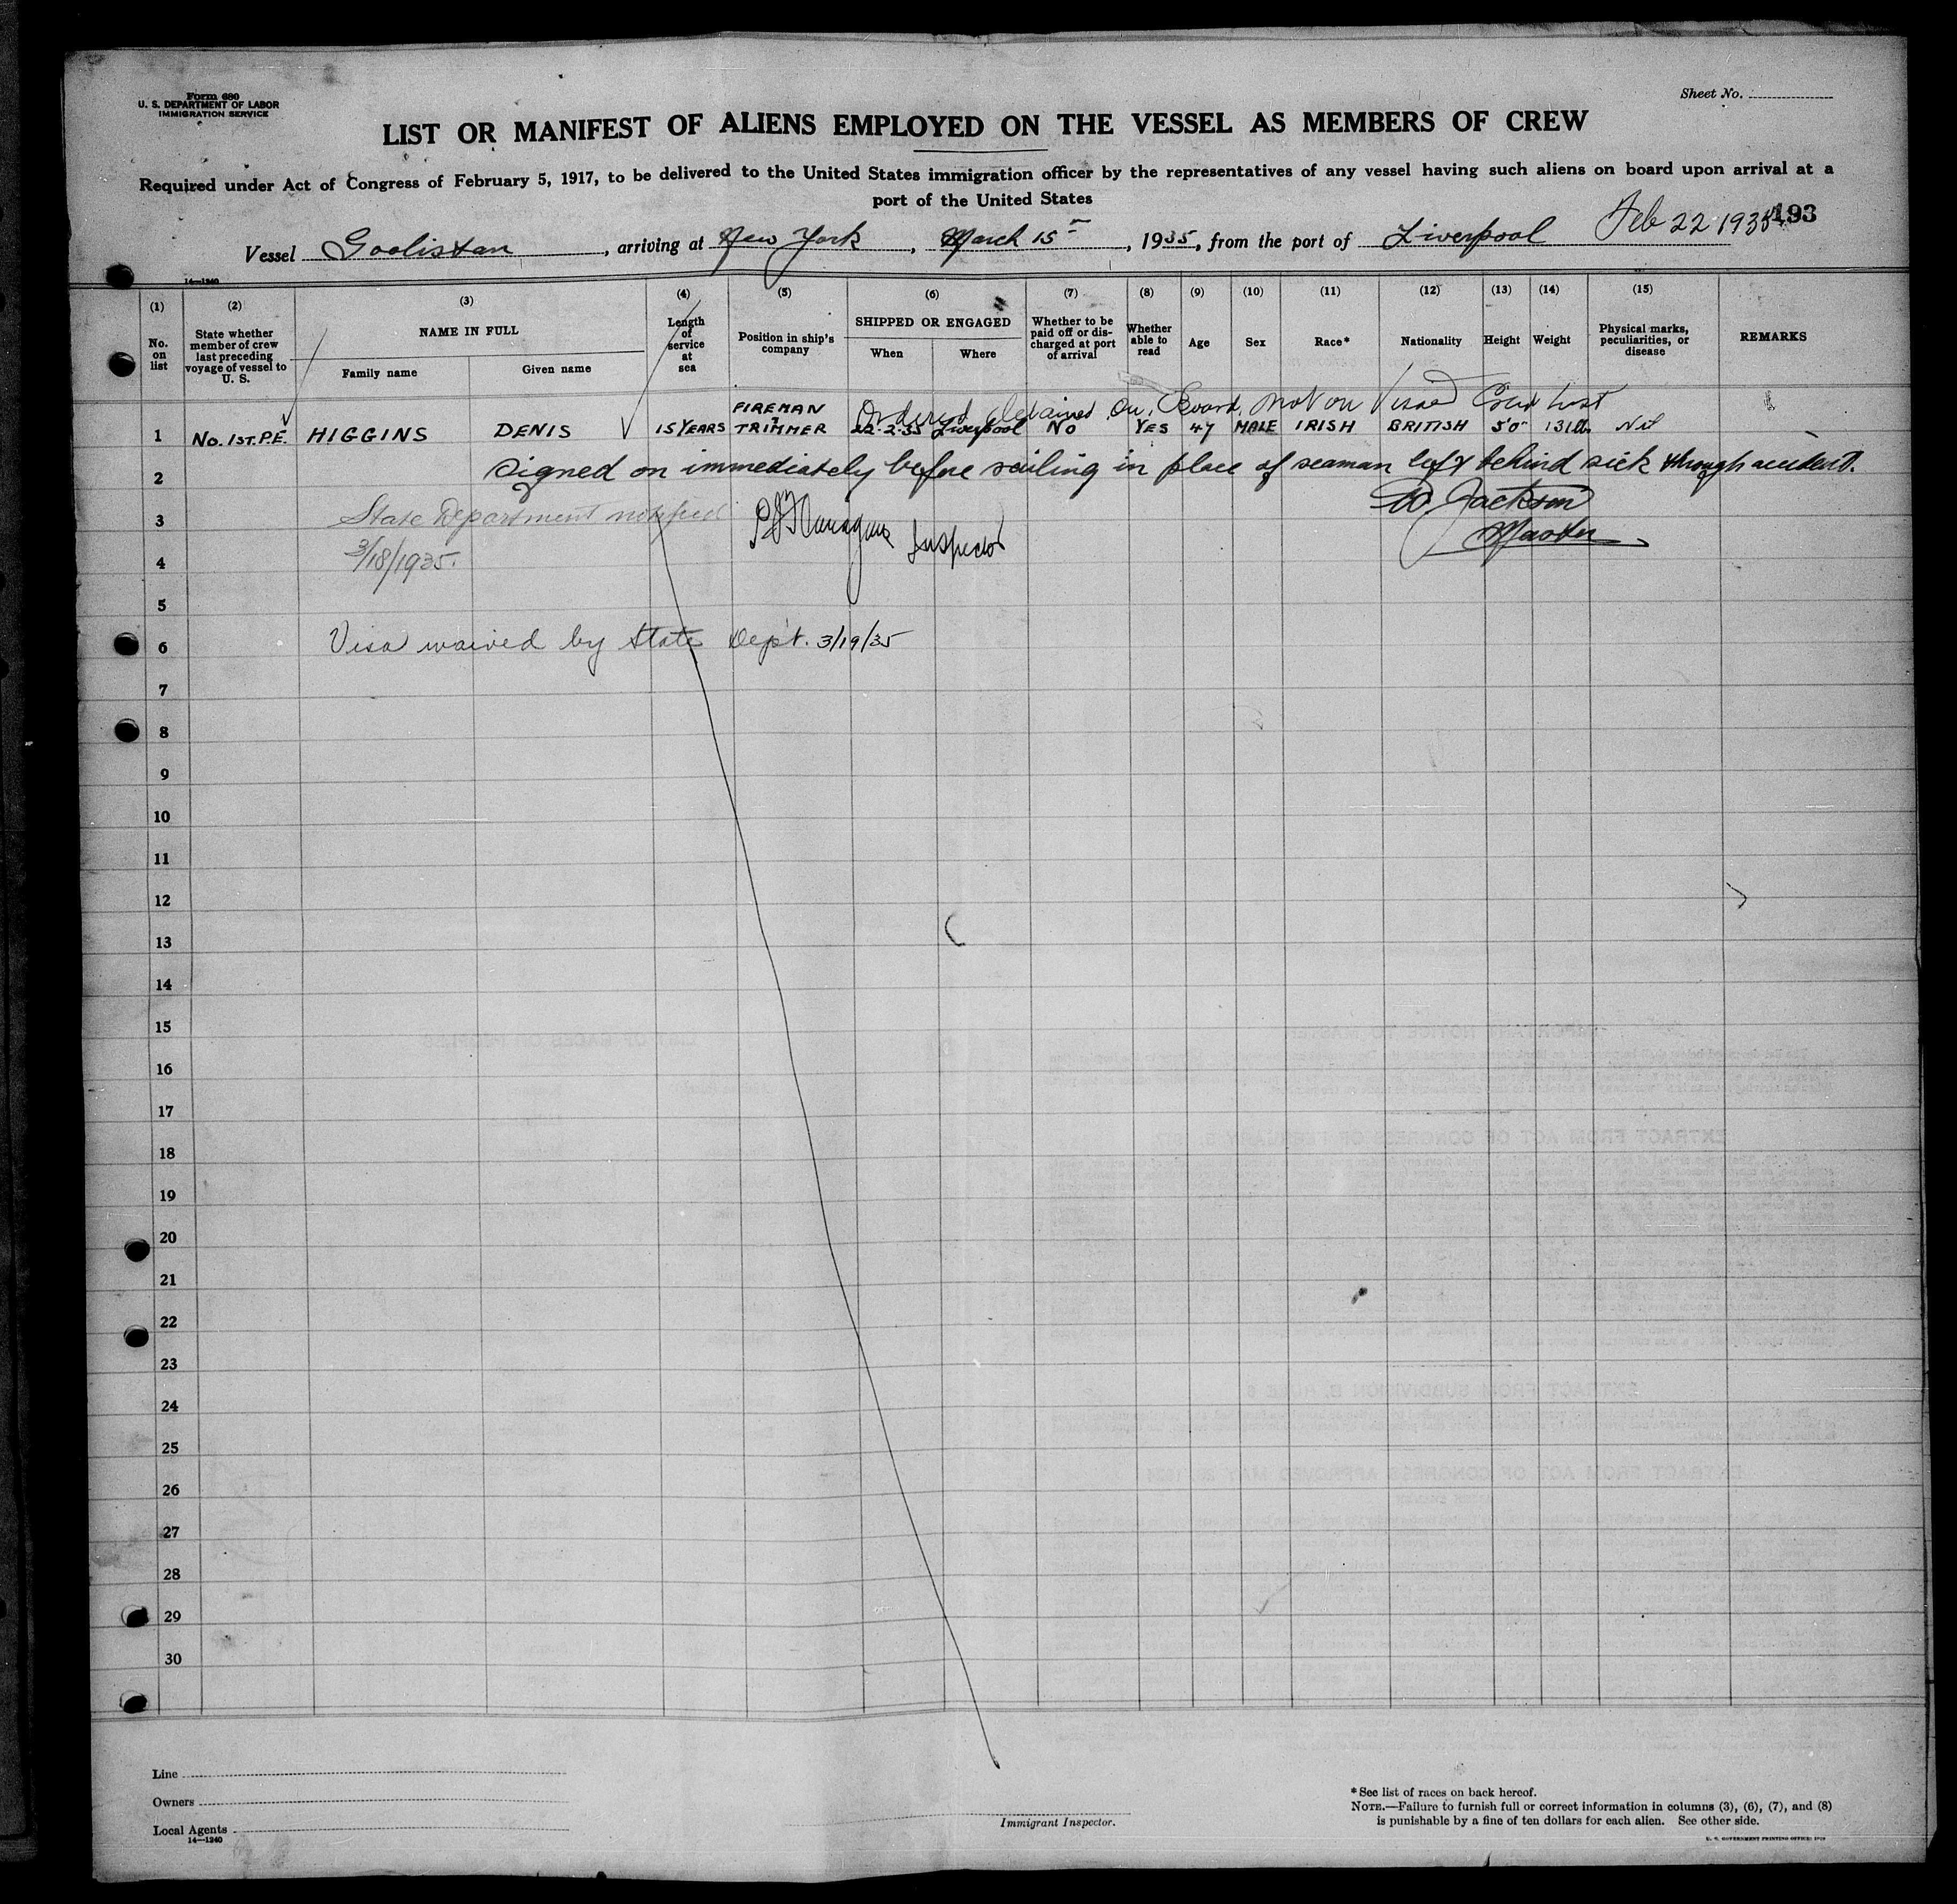 Form 680
U. S. DEPARTMENT OF LABOR
IMMIGRATION SERVICE
Sheet No.
LIST OR MANIFEST OF ALIENS EMPLOYED ON THE VESSEL AS MEMBERS OF CREW
Required under Act of Congress of February 5, 1917, to be delivered to the United States immigration officer by the representatives of any vessel having such aliens on board upon arrival at a
port of the United States
Vessel Goolistan, arriving at New York, March 15, 1935, from the port of Liverpool Feb 22 1935 193
14—1240
(1) (2) (3) (4) (5) (6) (7) (8) (9) (10) (11) (12) (13) (14) (15)
No. on list
State whether member of crew last preceding voyage of vessel to U. S.
NAME IN FULL
Family name
Given name
Length of service at sea
Position in ship's company
SHIPPED OR ENGAGED
When
Where
Whether to be paid off or discharged at port of arrival
Whether able to read
Age
Sex
Race*
Nationality
Height
Weight
Physical marks, peculiarities, or disease
REMARKS
Ordered detained on Board, not on Visaed Crew List
1 No. 1ST. P.E. HIGGINS DENIS 15 YEARS FIREMAN & TRIMMER 22-2-35 Liverpool NO YES 47 MALE IRISH BRITISH 5'0" 131 lb. Nil
2 Signed on immediately before sailing in place of seaman left behind sick through accident.
W. Jackson
3 State Department notified Inspector
Master
4 3/18/1935.
5
6 Visa waived by State Dep't. 3/19/35
7
8
9
10
11
12
13
14
15
16
17
18
19
20
21
22
23
24
25
26
27
28
29
30
Line
Owners
Local Agents
14—1240
Immigrant Inspector.
* See list of races on back hereof.
NOTE.—Failure to furnish full or correct information in columns (3), (6), (7), and (8)
is punishable by a fine of ten dollars for each alien. See other side.